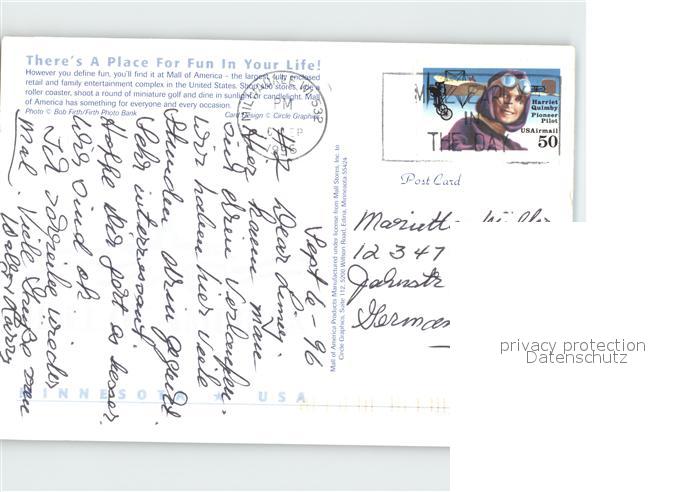 There's A Place For Fun In Your Life!
However you define fun, you'll find it at Mall of America - the largest, fully enclosed
retail and family entertainment complex in the United States. Shop 400 stores, ride a
roller coaster, shoot a round of miniature golf and dine in sunlight or candlelight. Mall
of America has something for everyone and every occasion.
Photo © Bob Firth/Firth Photo Bank Card Design © Circle Graphics
MILWAUKEE WI 532
PM
SEP
1996
MAIL EARLY
IN
THE DAY
Harriet
Quimby
Pioneer
Pilot
USAirmail
50
Post Card
Mall of America Products Manufactured under license from Mall Stores, Inc. to
Circle Graphics, Suite 112, 5200 Willson Road, Edina, Minnesota 55424
Sept 6-96
Dear
Hier kann man
sich drin verlaufen.
Wir haben hier viele
Stunden drin
Sehr interessant.
Hoffe Dir geht es besser.
Wir sind ok.
Ich schreibe wieder
mal. Viele Grüße von
Harry
12347
Johnstr
German
MINNESOTA ★ USA
privacy protection
Datenschutz